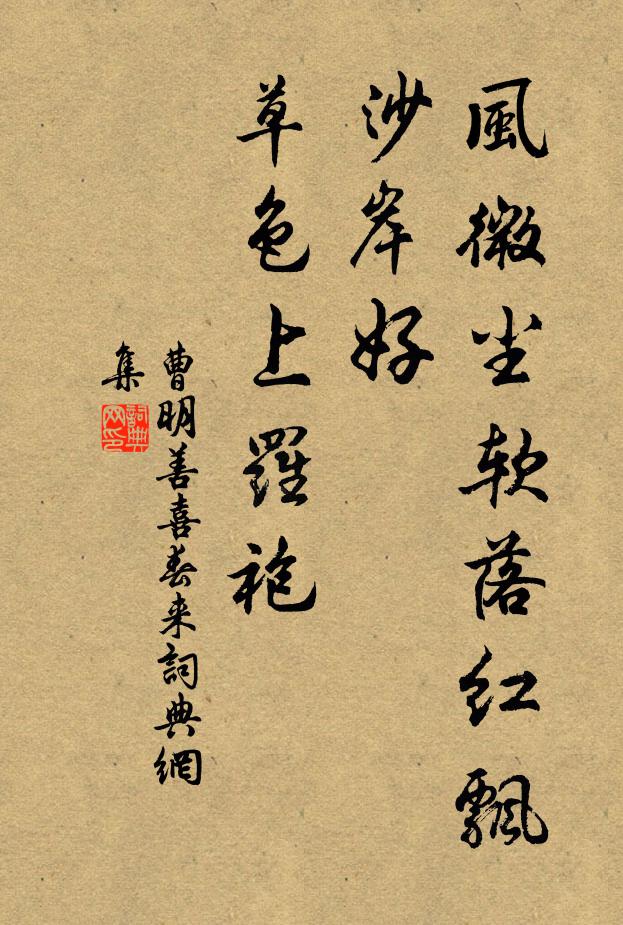 風微尘軟落紅飄
沙岸好
草色上羅袍
曹明善喜春来詞典網
集
詞典网印